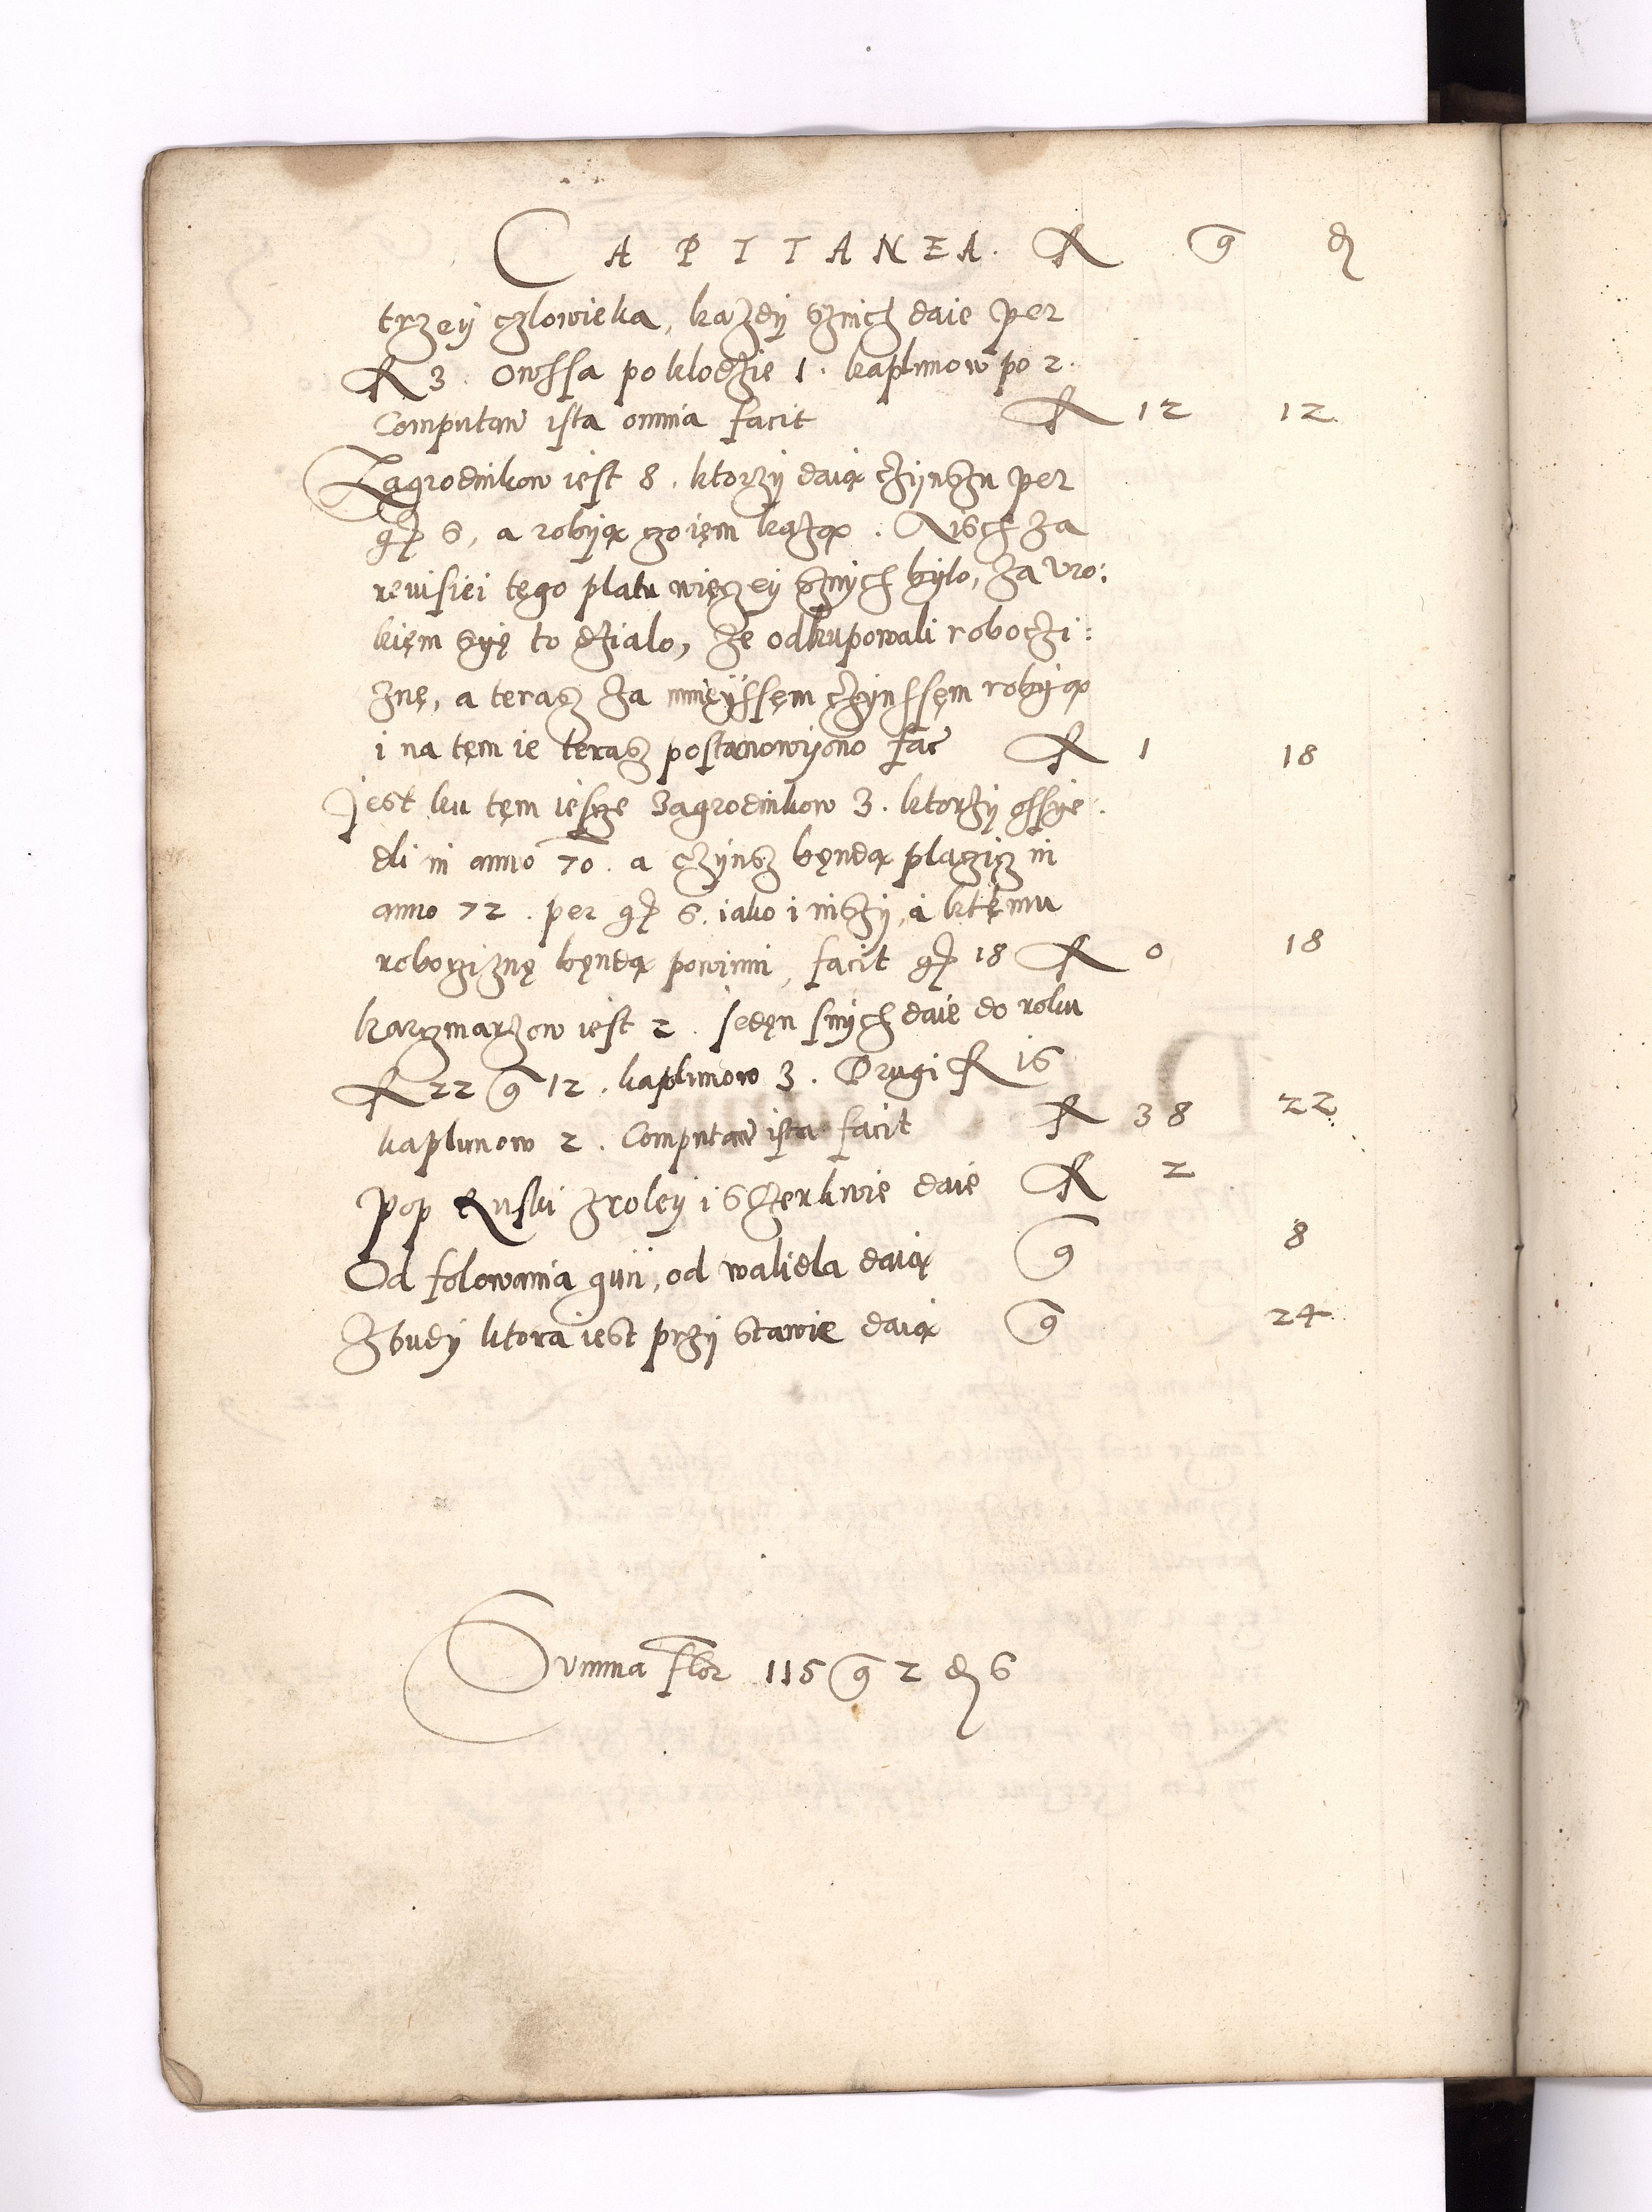 CAPITANEA. fl g đ
trzeÿ czlowieka, każdÿ sznich daie per
fl 3. Owssa po klodzie 1. kaplunow po 2.
Computan̄ ista omnia facit fl 12 12.
Zagrodnikow iest 8. ktorzÿ daią cżÿnszu per
gr 6, a robÿą czo ięm każą. Aisch za
reuisiei tęgo platu więczeÿ sznÿch bÿlo, za vro:
kięm syę to dzialo, że odkupowali robocżi:
znę, a terasz za mnieÿssęm cżÿnssęm robÿą
i na tęm ie terasz postanowÿono fac̄ fl 1 18
Jest ku tęm iescze zagrodnikow 3. ktorzÿ ossye:
dli in anno 70. a czÿnsz będą placzicz in
anno 72. per gr 6. iako i inszÿ, a ktęmu
roboczÿznę będą powinni, facit gr 18 fl 0 18
karczmarzow iest 2. Jedęn snÿch daie do roku
fl 22 g 12. kaplunow 3. Drugi fl 16
kaplunow 2. Computan̄ ista facit fl 38 22.
Pop Ruski zroleÿ i s Czerkwie daie fl 2
Od folowania guń, od walidla daią g 8
Zbudÿ ktora iest przÿ stawie daią g 24.
Summa flor 115 g 2 đ 6